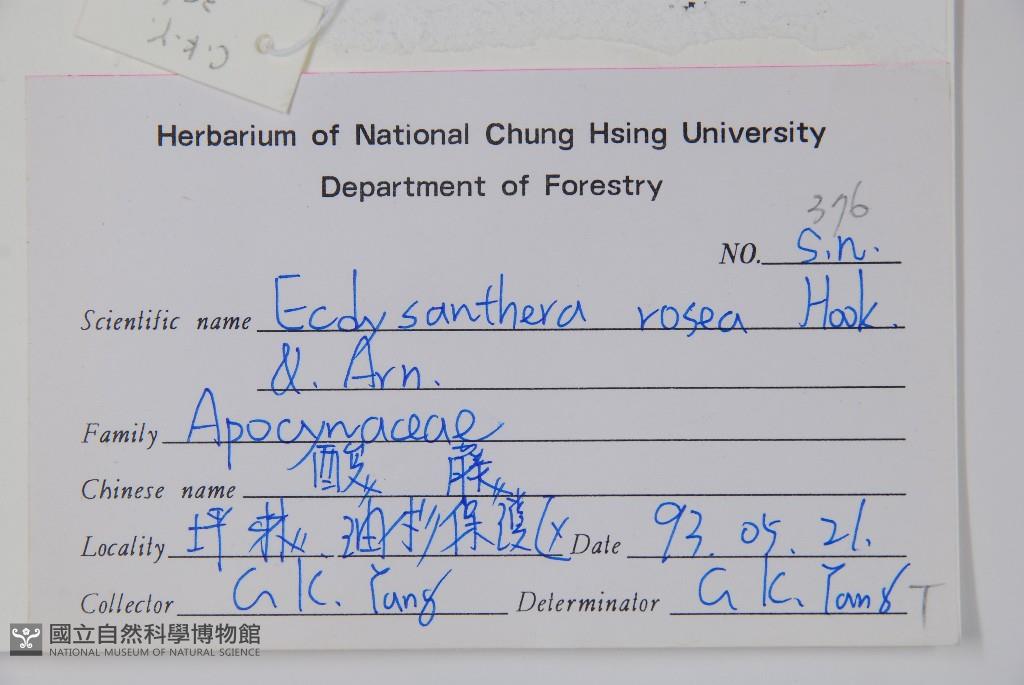 C.K.Y.
Herbarium of National Chung Hsing University
Department of Forestry
376
NO. S.n.
Scientific name Ecdysanthera rosea Hook.
& Arn.
Family Apocynaceae
Chinese name 酸藤
Locality 坪林、油杉保護区 Date 93.05.21.
Collector C. K. Yang Determinator C. K. Yang T
國立自然科學博物館
NATIONAL MUSEUM OF NATURAL SCIENCE